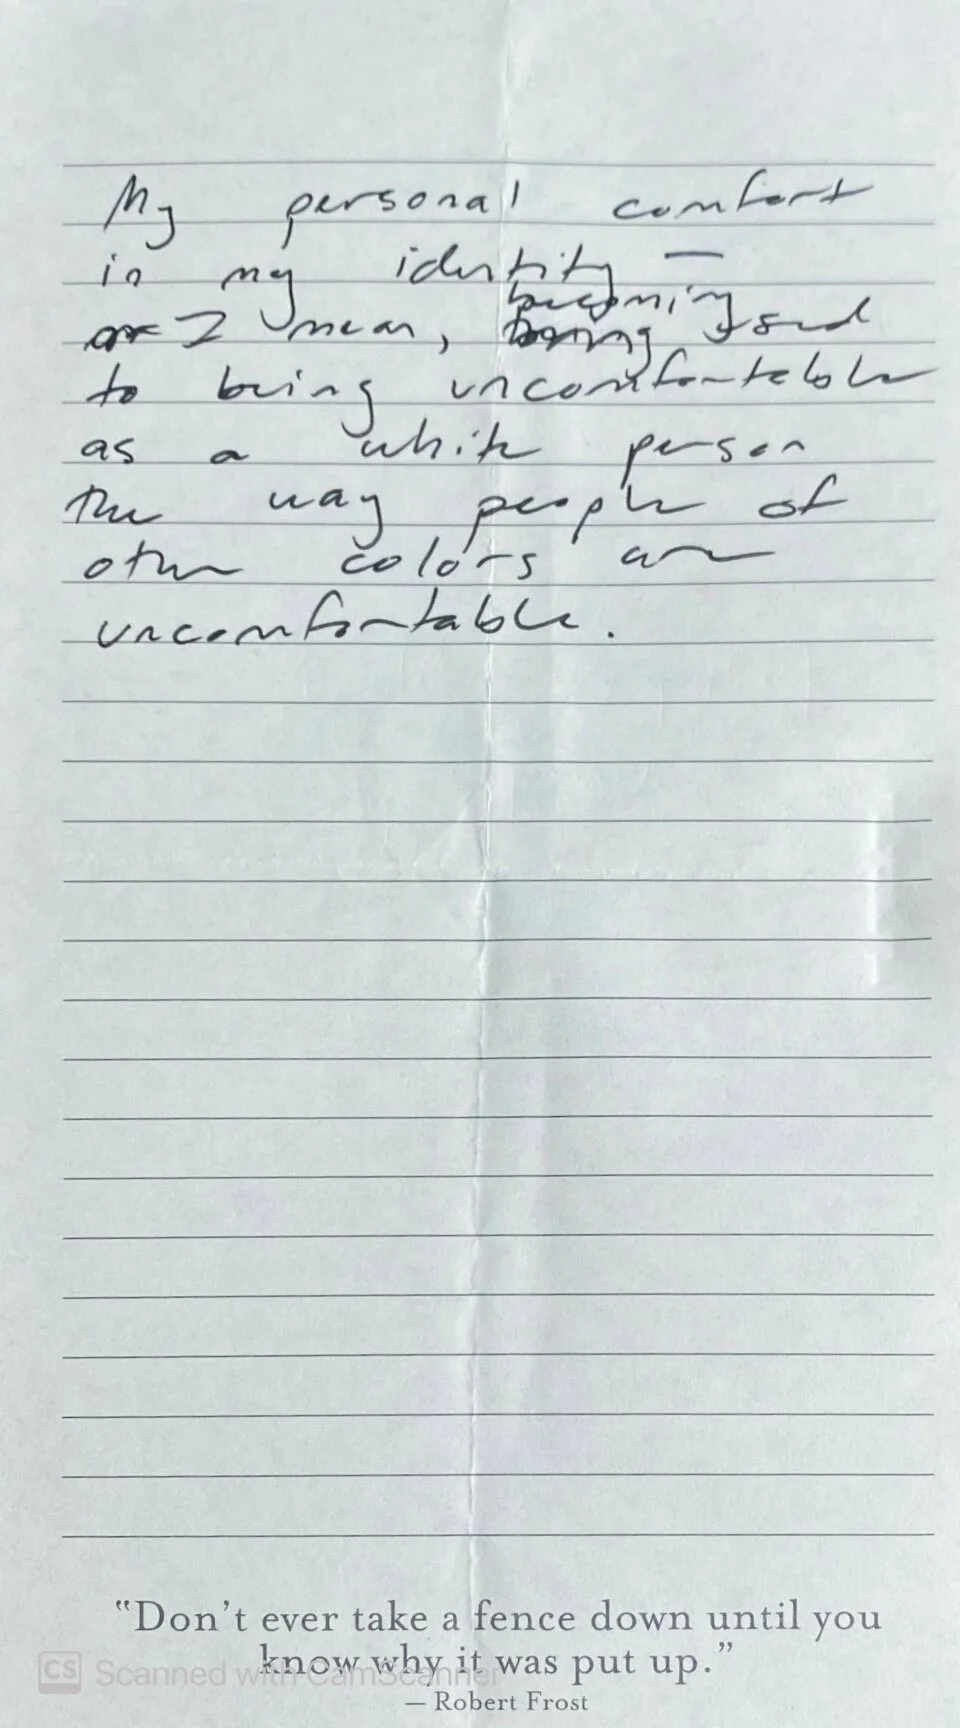 My personal comfort
in my identity —
or I mean, becoming used
to being uncomfortable
as a white person
the way people of
other colors are
uncomfortable.
"Don't ever take a fence down until you
know why it was put up."
— Robert Frost
CS Scanned with CamScanner